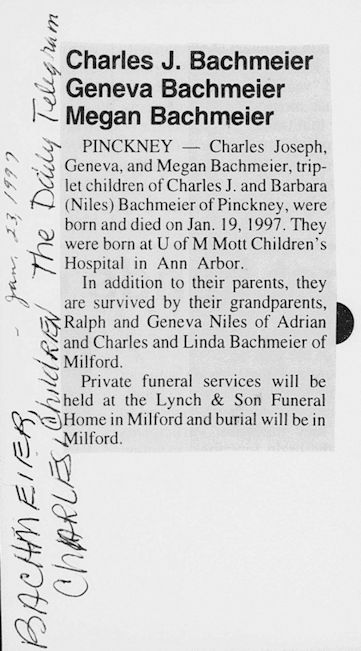 Charles J. Bachmeier
Geneva Bachmeier
Megan Bachmeier
PINCKNEY — Charles Joseph,
Geneva, and Megan Bachmeier, trip-
let children of Charles J. and Barbara
(Niles) Bachmeier of Pinckney, were
born and died on Jan. 19, 1997. They
were born at U of M Mott Children's
Hospital in Ann Arbor.
In addition to their parents, they
are survived by their grandparents,
Ralph and Geneva Niles of Adrian
and Charles and Linda Bachmeier of
Milford.
Private funeral services will be
held at the Lynch & Son Funeral
Home in Milford and burial will be in
Milford.
BACHMEIER, - Jan. 23, 1997
CHARLES' ChildREN The Daily Telegram